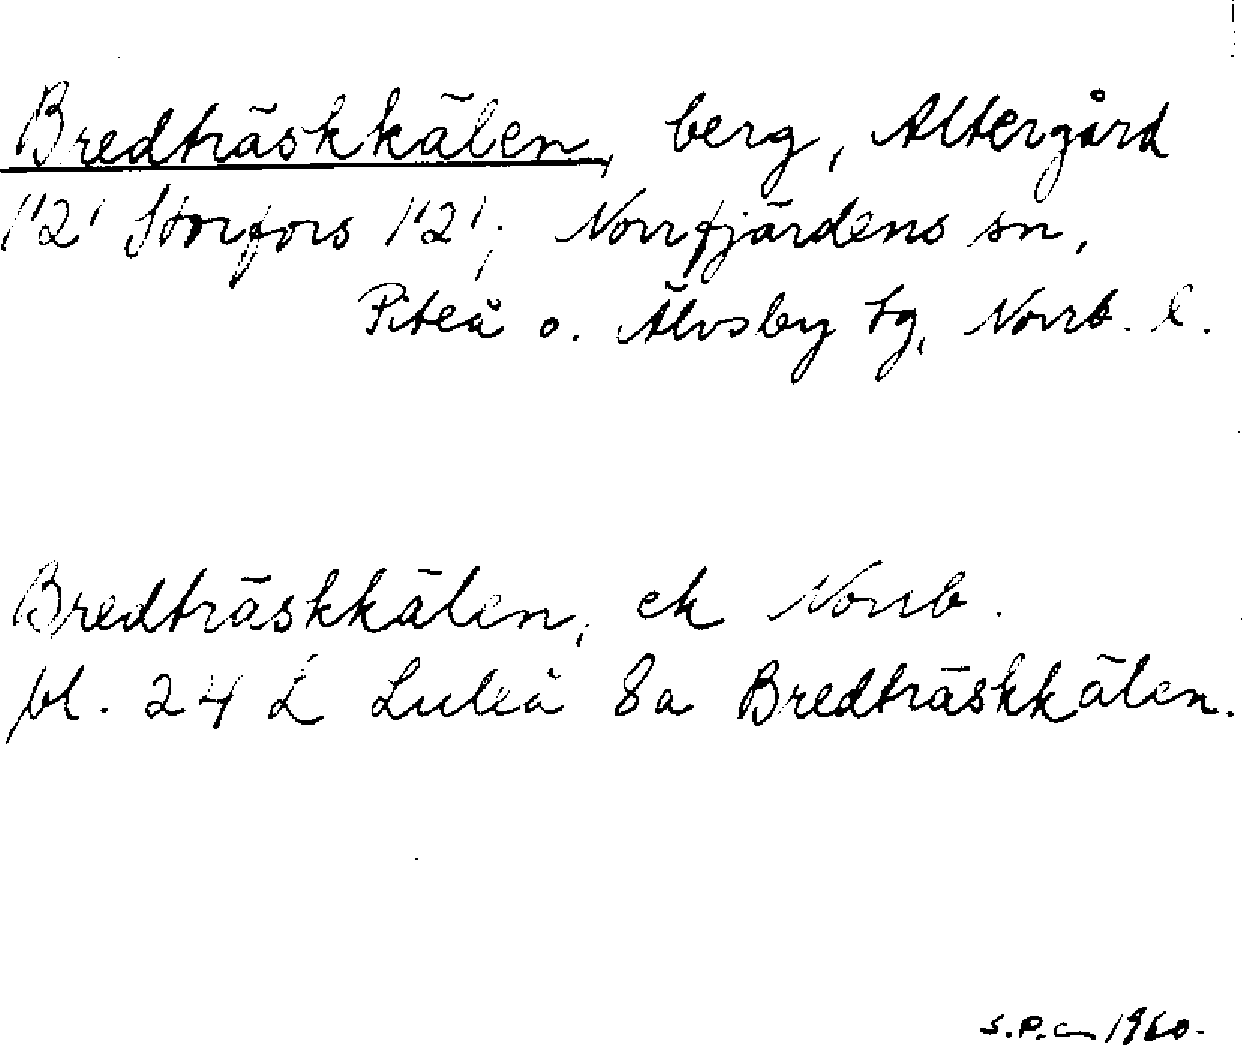 Bredträskkälen, berg, Altergård
1'2' Storfors 1'2'; Norrfjärdens sn,
Piteå o. Älvsby tg, Norrb. l.
Bredträskkälen, ek Norrb.
bl. 24 L Luleå 8a Bredträskkälen.
S.P. 1960.